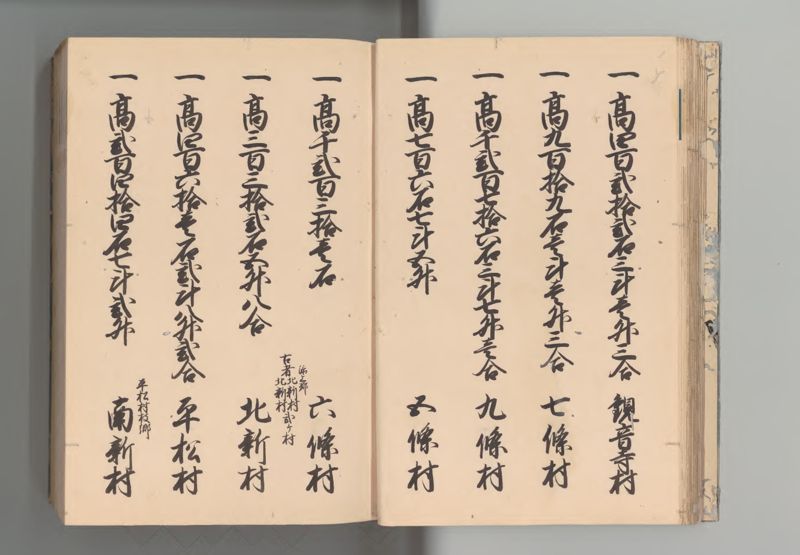 一高四百貳拾貳石三斗壹升三合 観音寺村
一高九百拾九石壹斗壹升三合 七條村
一高千貳百七拾六石三斗七升壹合 九條村
一高七百六石七斗五升 五條村
一高千貳百三拾壹石 六條村
古者北新村北新村貳ヶ村
一高三百三拾貳石五升八合 北新村
一高四百六拾壹石貳斗八升貳合 平松村
平松村枝郷
一高貳百四拾四石七斗貳升 南新村